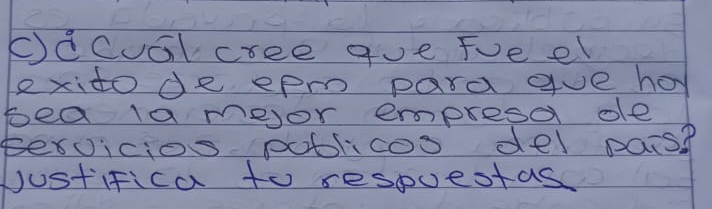 c) ¿Cuál cree que fue el
exito de epm para que hoy
sea la mejor empresa de
servicios publicos del pais?
Justifica tu respuestas